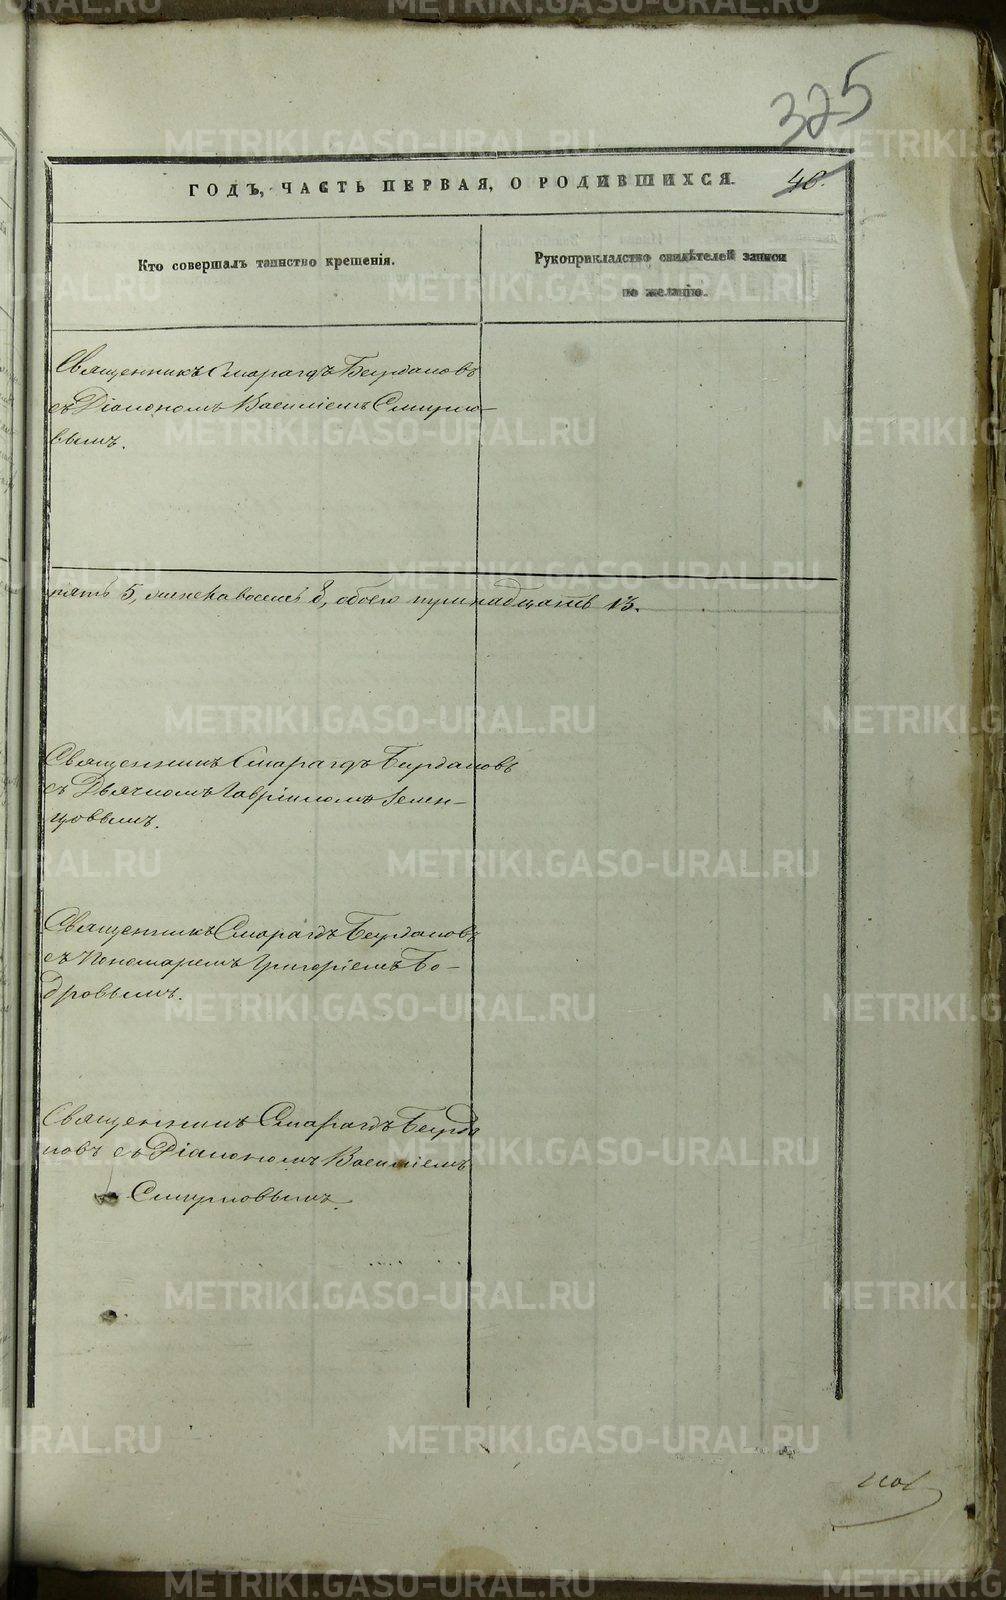 325
ГОДЪ, ЧАСТЬ ПЕРВАЯ, О РОДИВШИХСЯ.
46.
Кто совершалъ таинство крещенія.
Рукоприкладство свидѣтелей записи
по желанію.
Священникъ Смарагдъ Бурдаковъ
съ Діакономъ Василіемъ Смирно-
вымъ.
пять 5, женска восемь 8, обоего тринадцать 13.
Священникъ Смарагдъ Бурдаковъ
съ Дьячкомъ Гавріиломъ Земен-
цовымъ.
Священникъ Смарагдъ Бурдаковъ
съ Пономаремъ Григоріемъ Бо-
дровымъ.
Священникъ Смарагдъ Бурда
ковъ съ Діакономъ Василіемъ
Смирновымъ.
METRIKI.GASO-URAL.RU